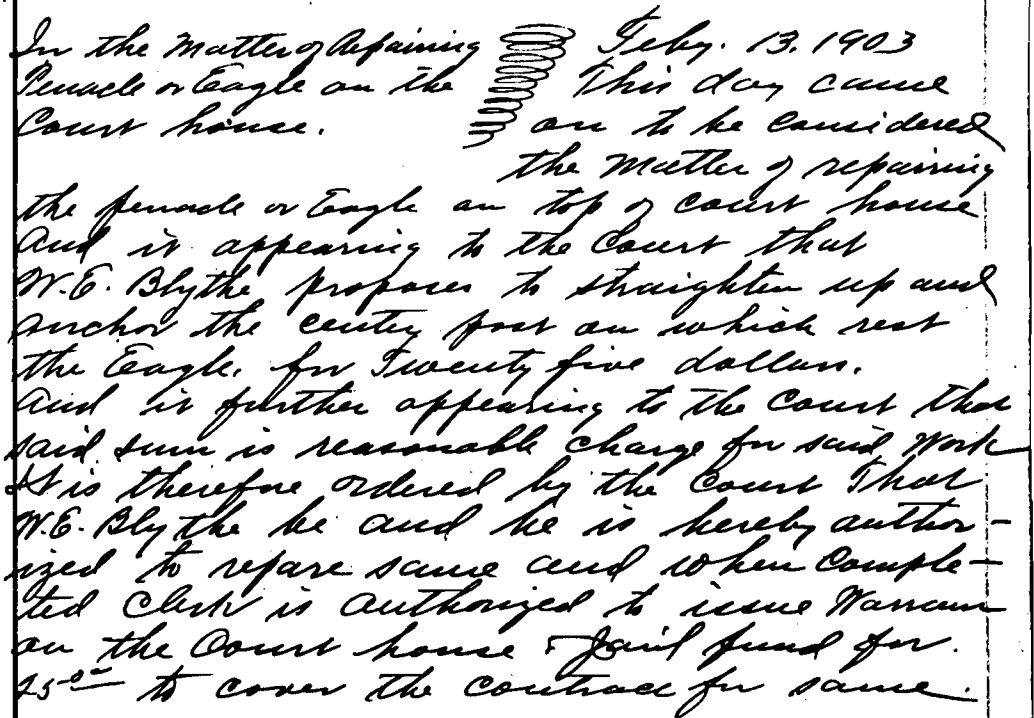 In the Matter of Repairing
Penacle or Eagle on the
Court house.
Feby. 13. 1903
This day came
on to be considered
the Matter of repairing
the penacle or Eagle on top of court house
And it appearing to the Court that
W.E. Blythe proposes to straighten up and
anchor the center post on which rest
the Eagle. for Twenty five dollars.
And it further appearing to the Court that
said sum is reasonable charge for said Work
It is therefore ordered by the Court That
W.E. Blythe be and he is hereby author-
ized to repare same and when Comple-
ted Clerk is authorized to issue Warrant
on the Court house & Jail fund for.
25.00 to cover the contract for same.